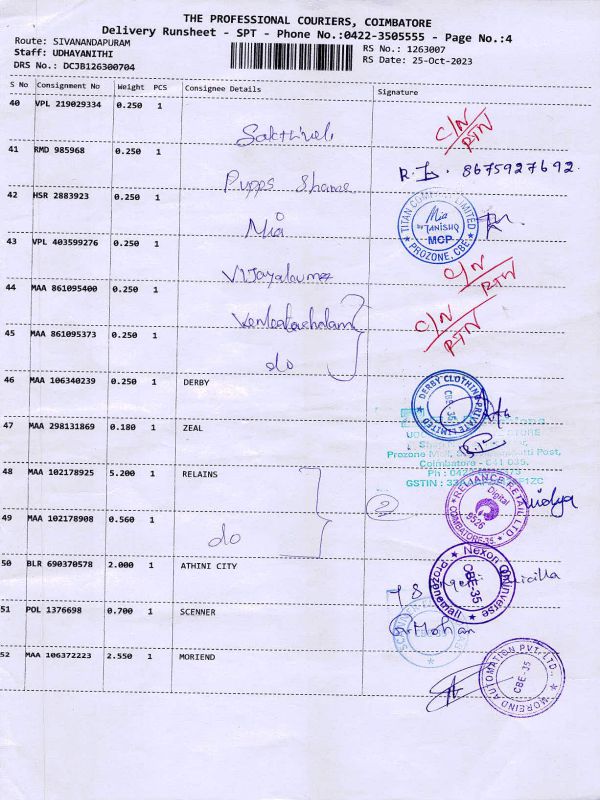 THE PROFESSIONAL COURIERS, COIMBATORE
Delivery Runsheet - SPT - Phone No.:0422-3505555 - Page No.:4
Route: SIVANANDAPURAM
Staff: UDHAYANITHI
DRS No.: DCJB126300704
RS No.: 1263007
RS Date: 25-Oct-2023
S No Consignment No Weight PCS Consignee Details Signature
40 VPL 219029334 0.250 1
Sakthivel
C/N
RTN
41 RMD 985968 0.250 1
Pupps Shame
8675927692
42 HSR 2883923 0.250 1
Mia
TITAN COMPANY LIMITED
Mia
by TANISHQ
MCP
PROZONE, CBE
43 VPL 403599276 0.250 1
Vijayakumar
C/N
RTN
44 MAA 861095400 0.250 1
Venkatachalam
C/N
RTN
45 MAA 861095373 0.250 1
do
46 MAA 106340239 0.250 1 DERBY
DERBY CLOTHING PRIVATE LIMITED
CBE-35
47 MAA 298131869 0.180 1 ZEAL
Coimbatore - 641 035.
48 MAA 102178925 5.200 1 RELAINS
2
RELIANCE RETAIL LTD
Digital
9526
COIMBATORE-35
Vidya
49 MAA 102178908 0.560 1
do
50 BLR 690370578 2.000 1 ATHINI CITY
Nexon Universe
CBE-35
Prozone Mall
51 POL 1376698 0.700 1 SCENNER
Mohan
52 MAA 106372223 2.550 1 MORIEND
MOREIND AUTOMATION PVT. LTD.,
CBE-35